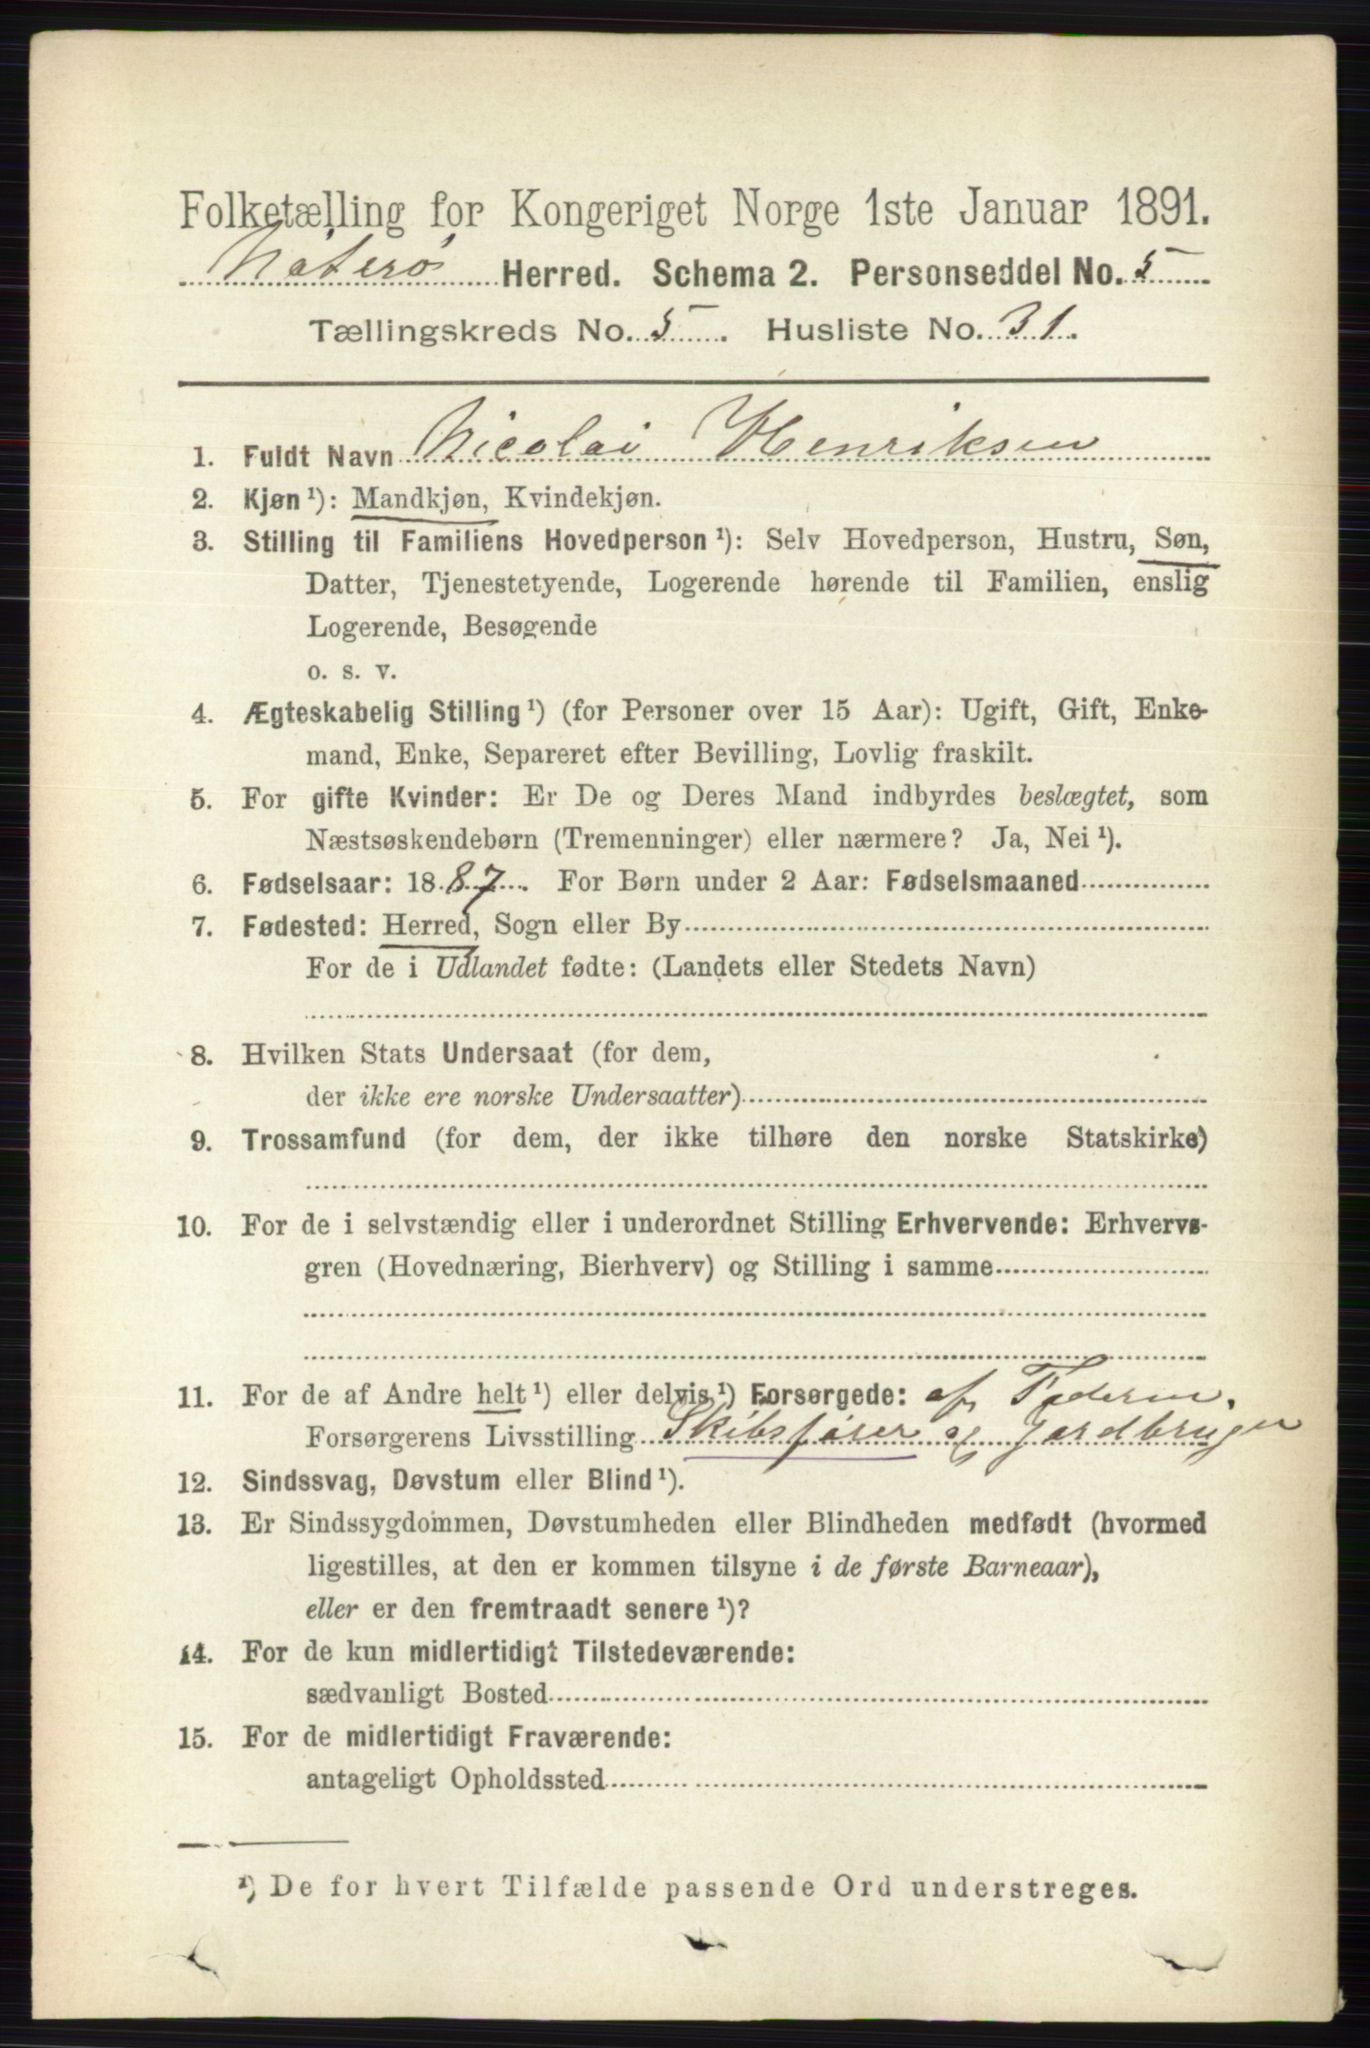 Folketælling for Kongeriget Norge 1ste Januar 1891.
Nøterø Herred. Schema 2. Personseddel No. 5
Tællingskreds No. 5. Husliste No. 31.
1. Fuldt Navn Nicolai Henriksen
2. Kjøn ¹): Mandkjøn, Kvindekjøn.
3. Stilling til Familiens Hovedperson ¹): Selv Hovedperson, Hustru, Søn,
Datter, Tjenestetyende, Logerende hørende til Familien, enslig
Logerende, Besøgende
o. s. v.
4. Ægteskabelig Stilling ¹) (for Personer over 15 Aar): Ugift, Gift, Enke-
mand, Enke, Separeret efter Bevilling, Lovlig fraskilt.
5. For gifte Kvinder: Er De og Deres Mand indbyrdes beslægtet, som
Næstsøskendebørn (Tremenninger) eller nærmere? Ja, Nei ¹).
6. Fødselsaar: 1887. For Børn under 2 Aar: Fødselsmaaned
7. Fødested: Herred, Sogn eller By
For de i Udlandet fødte: (Landets eller Stedets Navn)
8. Hvilken Stats Undersaat (for dem,
der ikke ere norske Undersaatter)
9. Trossamfund (for dem, der ikke tilhøre den norske Statskirke)
10. For de i selvstændig eller i underordnet Stilling Erhvervende: Erhvervs-
gren (Hovednæring, Bierhverv) og Stilling i samme
11. For de af Andre helt ¹) eller delvis ¹) Forsørgede: af Faderen.
Forsørgerens Livsstilling Skibsfører og Jordbruger
12. Sindssvag, Døvstum eller Blind ¹).
13. Er Sindssygdommen, Døvstumheden eller Blindheden medfødt (hvormed
ligestilles, at den er kommen tilsyne i de første Barneaar),
eller er den fremtraadt senere ¹)?
14. For de kun midlertidigt Tilstedeværende:
sædvanligt Bosted
15. For de midlertidigt Fraværende:
antageligt Opholdssted
¹) De for hvert Tilfælde passende Ord understreges.